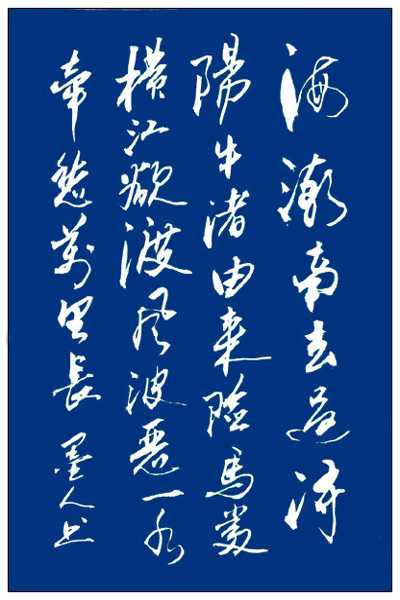 海潮南去過潯
陽牛渚由來險馬當
橫江欲渡風波惡一水
牽愁萬里長 墨人书